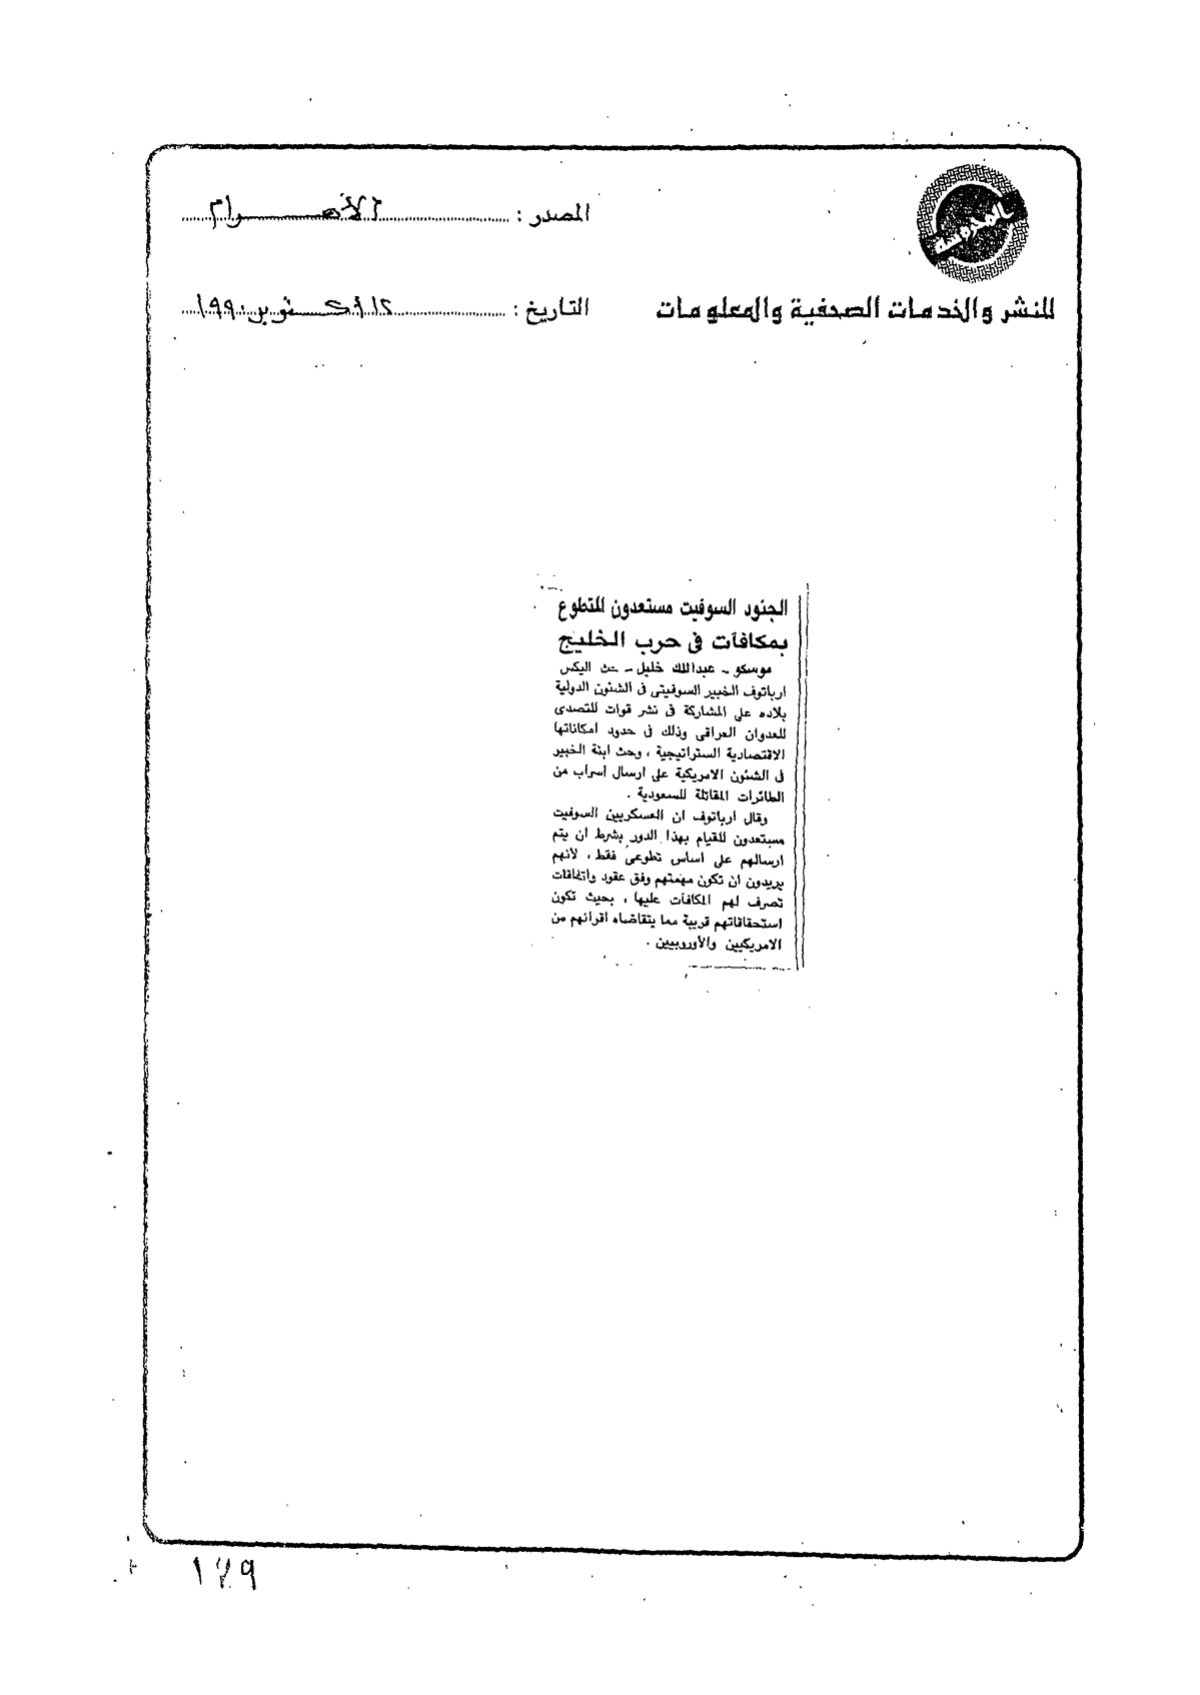 المحروسة
للنشر والخدمات الصحفية والمعلومات
المصدر : الأهرام
التاريخ : ١٢ أكتوبر ١٩٩٠
الجنود السوفيت مستعدون للتطوع
بمكافآت فى حرب الخليج
موسكو ـ عبدالملك خليل ـ حث اليكس
ارباتوف الخبير السوفيتى فى الشئون الدولية
بلاده على المشاركة فى نشر قوات للتصدى
للعدوان العراقى وذلك فى حدود امكاناتها
الاقتصادية الستراتيجية ، وحث ابنة الخبير
فى الشئون الامريكية على ارسال اسراب من
الطائرات المقاتلة للسعودية .
وقال ارباتوف ان العسكريين السوفيت
مستعدون للقيام بهذا الدور بشرط ان يتم
ارسالهم على اساس تطوعى فقط ، لانهم
يريدون ان تكون مهمتهم وفق عقود واتفاقات
تصرف لهم المكافآت عليها ، بحيث تكون
استحقاقاتهم قريبة مما يتقاضاه اقرانهم من
الامريكيين والأوروبيين .